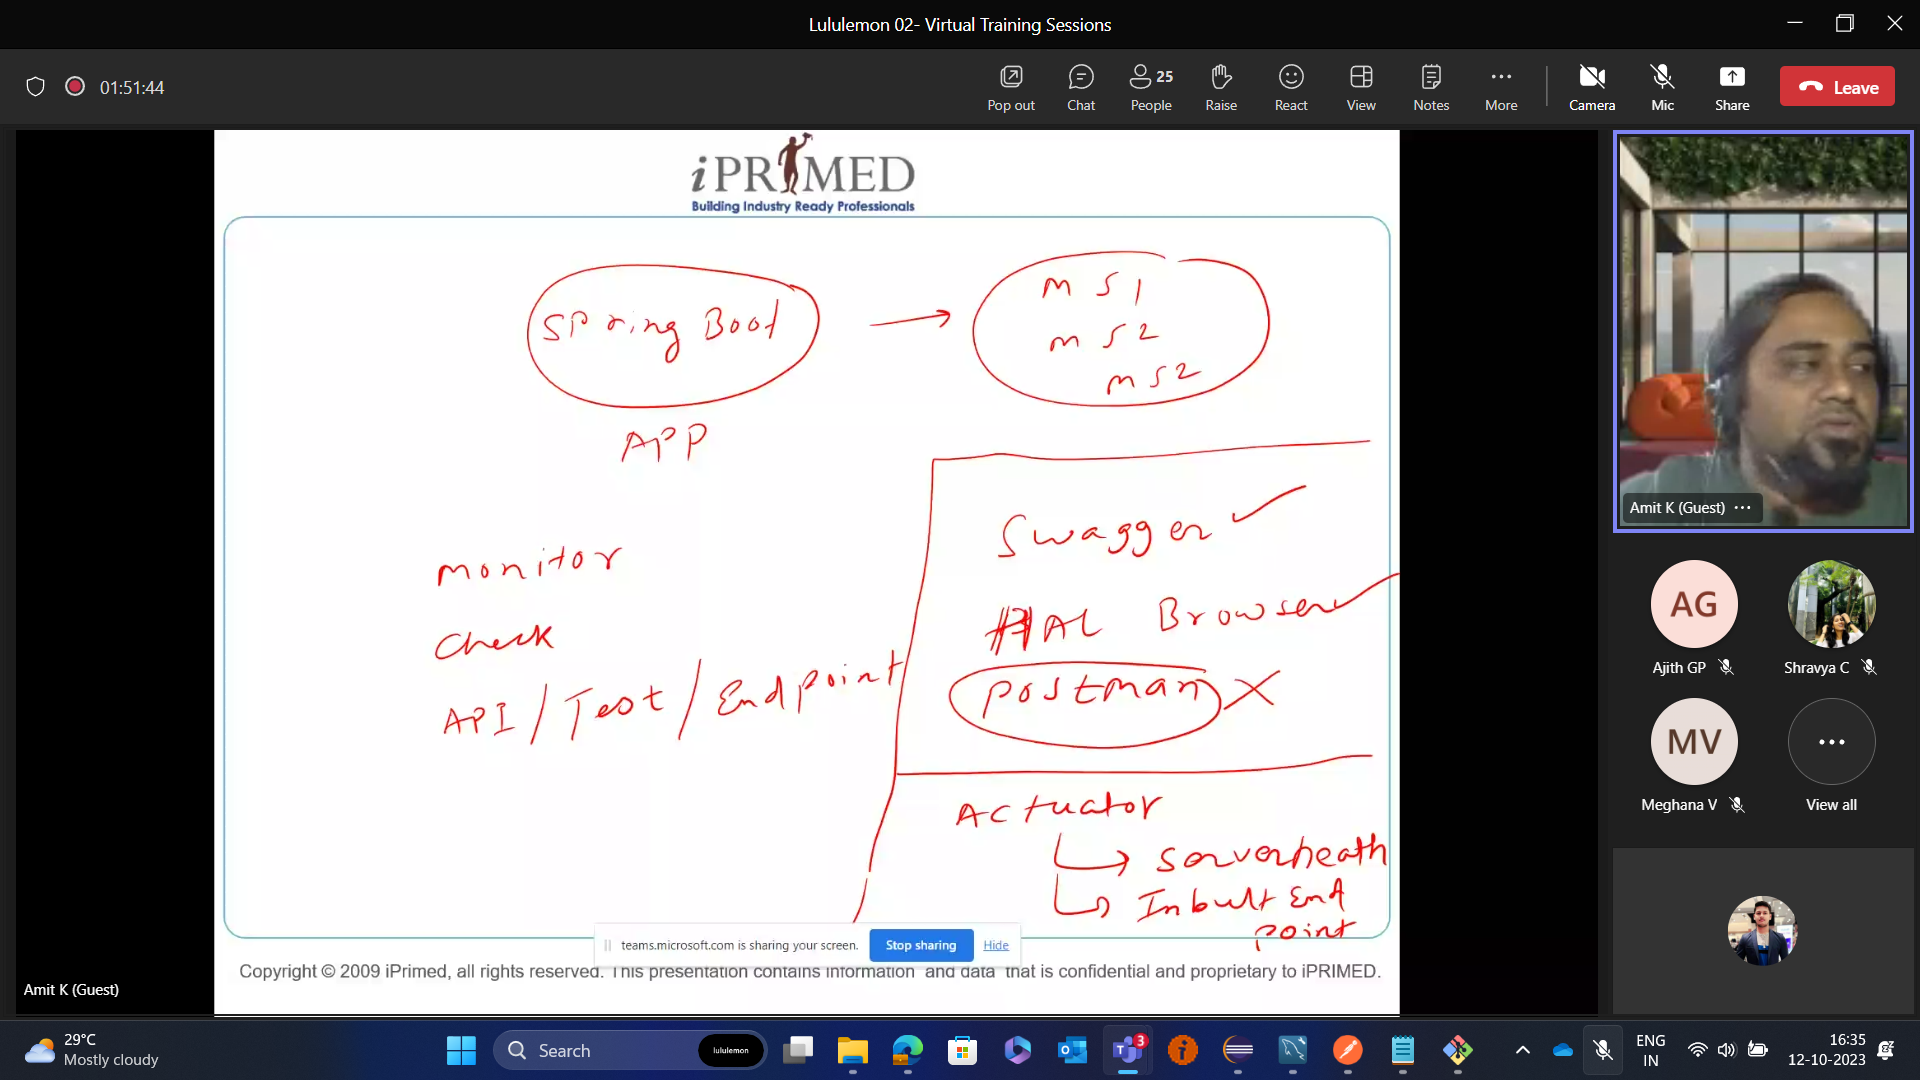 Lululemon 02- Virtual Training Sessions
01:51:44
Pop out
Chat
25
People
Raise
React
View
Notes
More
Camera
Mic
Share
Leave
iPRIMED
Building Industry Ready Professionals
Spring Boot
APP
MS1
MS2
MS2
Monitor
Check
API / Test / Endpoint
Swagger ✓
HAL Browser ✓
Postman X
Actuator
Serverheath
Inbult End
point
teams.microsoft.com is sharing your screen.
Stop sharing
Hide
Copyright © 2009 iPrimed, all rights reserved. This presentation contains information and data that is confidential and proprietary to iPRIMED.
Amit K (Guest)
Amit K (Guest) ...
AG
Ajith GP
Shravya C
MV
Meghana V
...
View all
29°C
Mostly cloudy
Search
lululemon
3
ENG
IN
16:35
12-10-2023